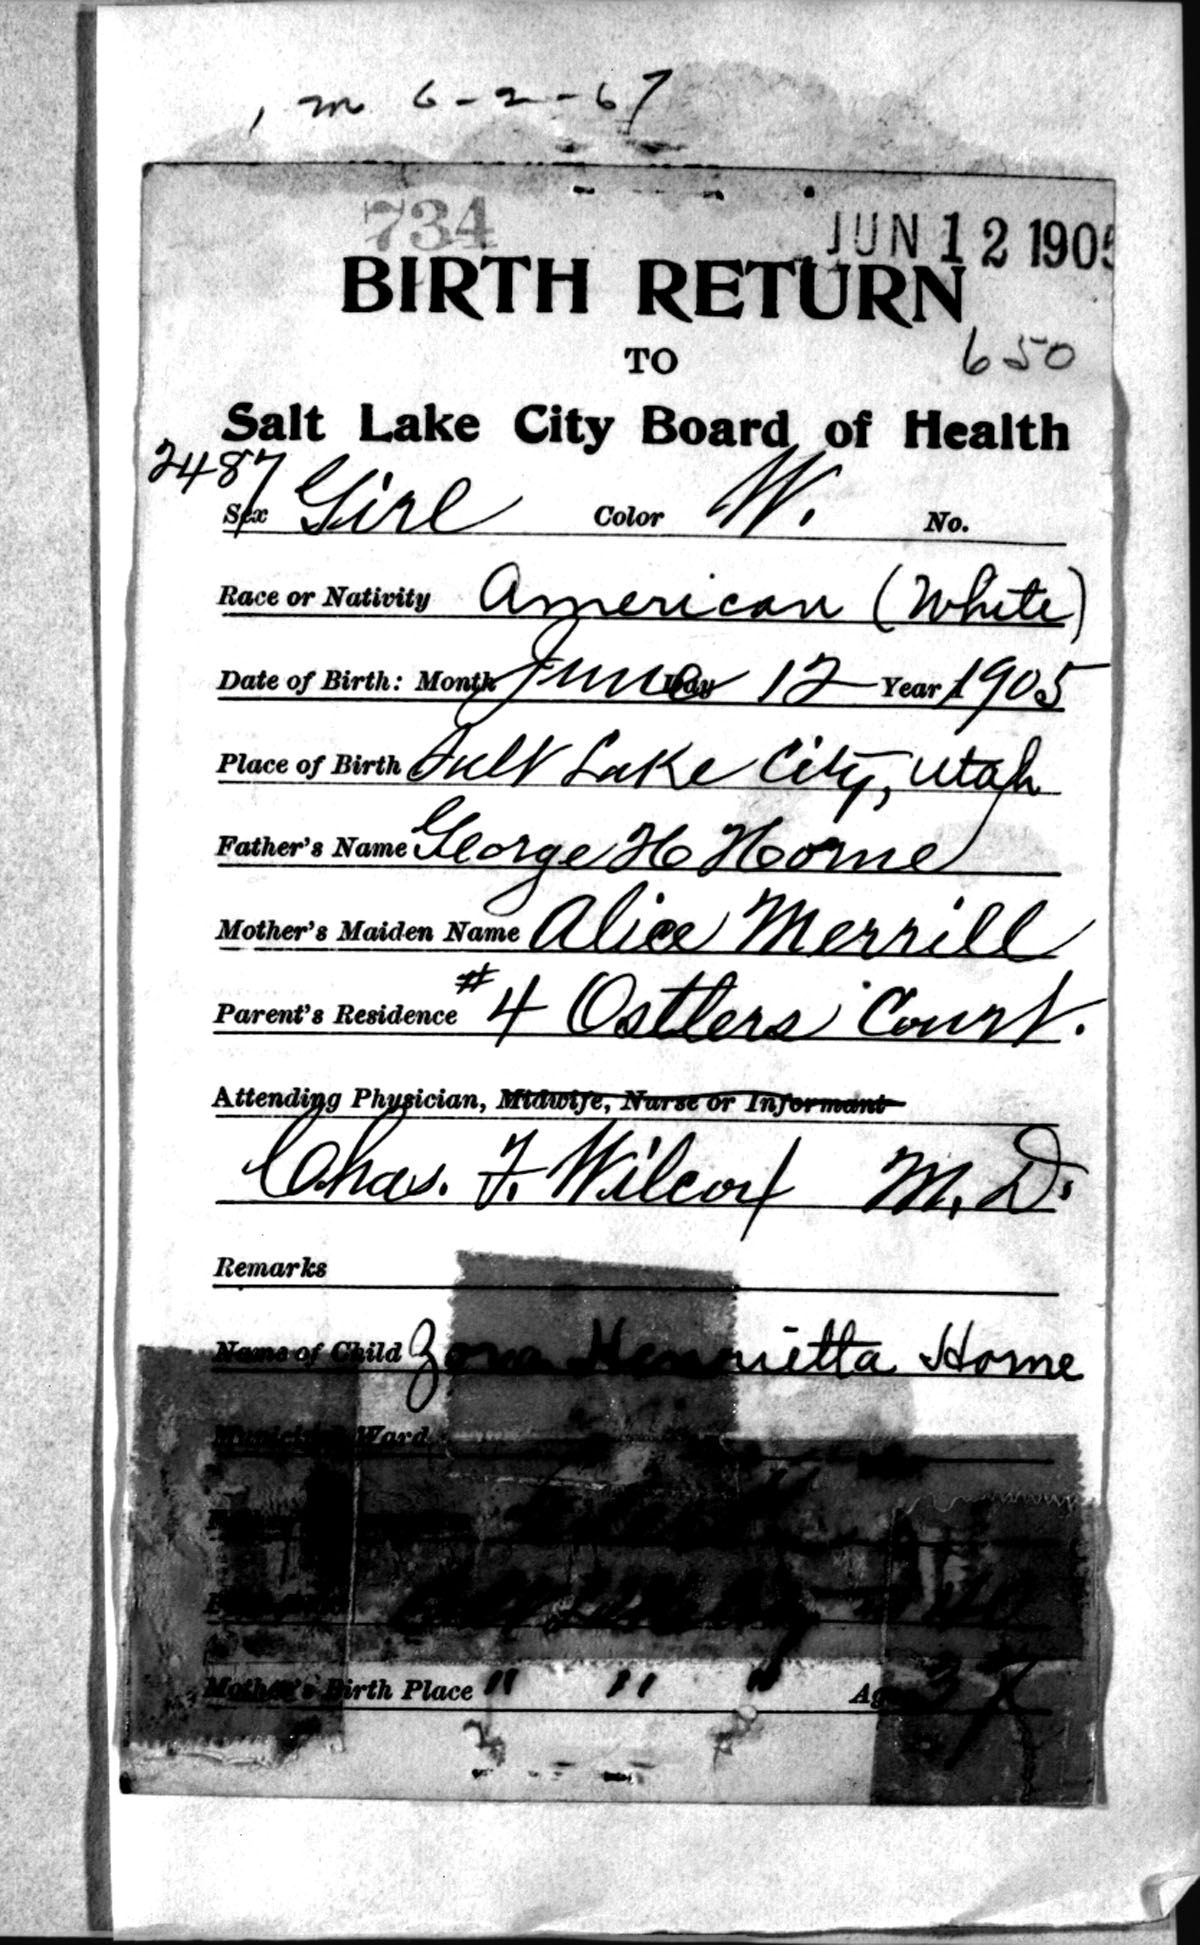 , m 6-2-67
734
JUN 12 1905
BIRTH RETURN
TO
650
Salt Lake City Board of Health
2487
Sex Girl Color W. No.
Race or Nativity American (White)
Date of Birth: Month June Day 12 Year 1905
Place of Birth Salt Lake City, Utah
Father's Name George H Horne
Mother's Maiden Name Alice Merrill
Parent's Residence #4 Ostlers Court.
Attending Physician, Midwife, Nurse or Informant
Chas. F. Wilcox M.D.
Remarks
Name of Child Zora Henrietta Horne
Municipal Ward
Mother's Birth Place " " " Age 37